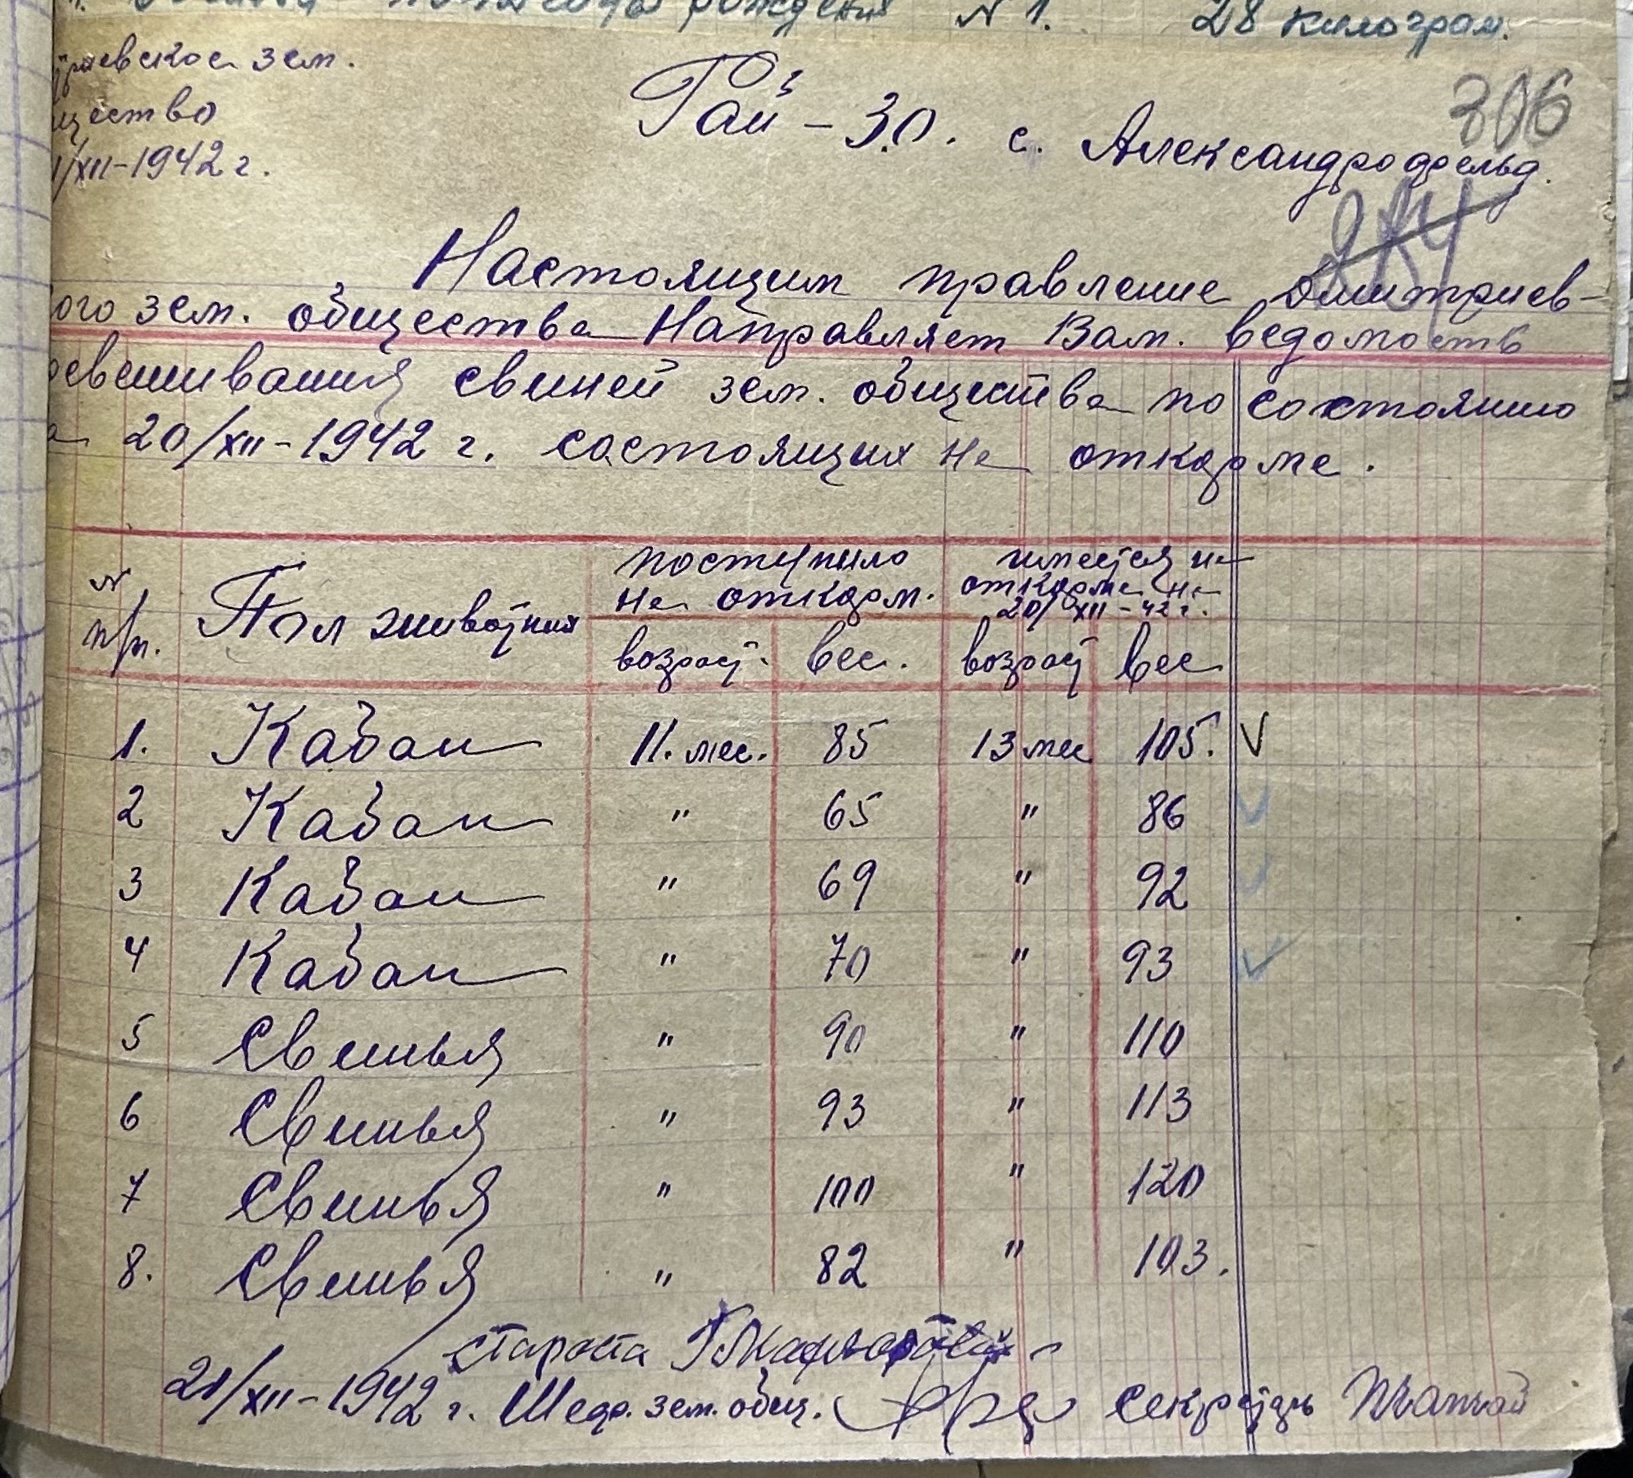 рождения N 1. 28 килограм.
триевское зем.
щество
1/XII-1942 г.
Рай-З.О. с. Александрофельд.
306
Настоящим правление Дмитриев-
ого зем. общества Направляет Вам. ведомость
ревешивания свиней зем. общества по состоянию
а 20/XII-1942 г. состоящих на откорме.
N п/п. Пол животных поступило на откорм. имеется на откорме на 20/XII-42 г.
возраст. вес. возраст вес
1. Кабан 11. мес. 85 13 мес 105. V
2 Кабан " 65 " 86 V
3 Кабан " 69 " 92 V
4 Кабан " 70 " 93 V
5 Свинья " 90 " 110
6 Свинья " 93 " 113
7 Свинья " 100 " 120
8. Свинья " 82 " 103.
староста
21/XII-1942 г. зем. общ. секретарь